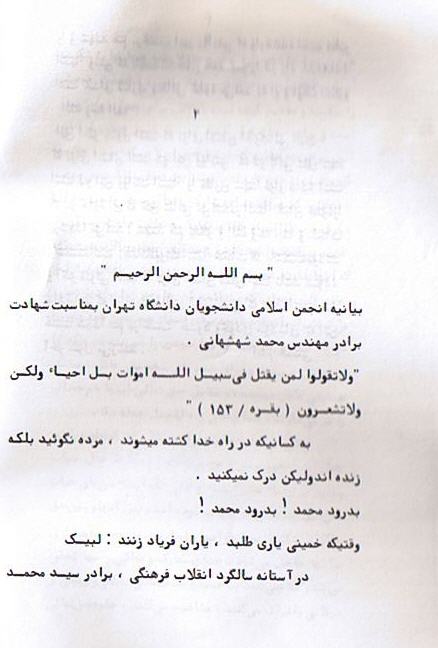 ۲
" بسم اللـه الرحمن الرحیـم "
بیانیه انجمن اسلامی دانشجویان دانشگاه تهران بمناسبت شهادت
برادر مهندس محمد شهشهانی .
"ولاتقولوا لمن یقتل فی سبیـل اللـه اموات بـل احیاء ولکـن
ولاتشعـرون ( بقـره / ۱۵۳ ) "
به کسانیکه در راه خدا کشته میشوند ، مرده نگوئید بلکه
زنده اندولیکن درک نمیکنید .
بدرود محمد ! بدرود محمد !
وقتیکه خمینی یاری طلبد ، یاران فریاد زنند : لبیـک
در آستانه سالگرد انقلاب فرهنگی ، برادر سیـد محمـد